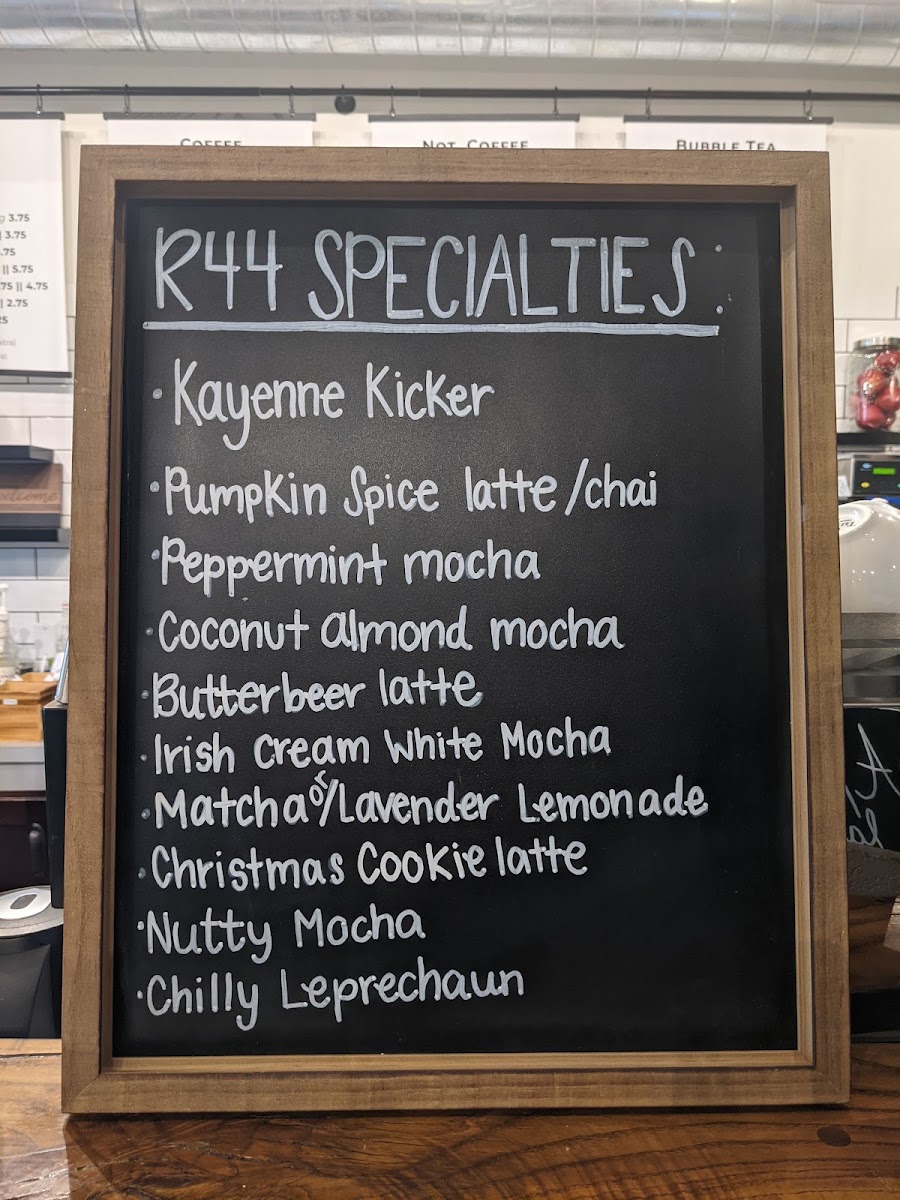 COFFEE
NOT COFFEE
BUBBLE TEA
3.75
| 3.75
.75
|| 5.75
.75 || 4.75
| 2.75
R44 SPECIALTIES:
· Kayenne Kicker
· Pumpkin Spice latte/chai
· Peppermint mocha
· Coconut almond mocha
· Butterbeer latte
· Irish Cream White Mocha
· Matcha or/Lavender Lemonade
· Christmas Cookie latte
· Nutty Mocha
· Chilly Leprechaun
welcome